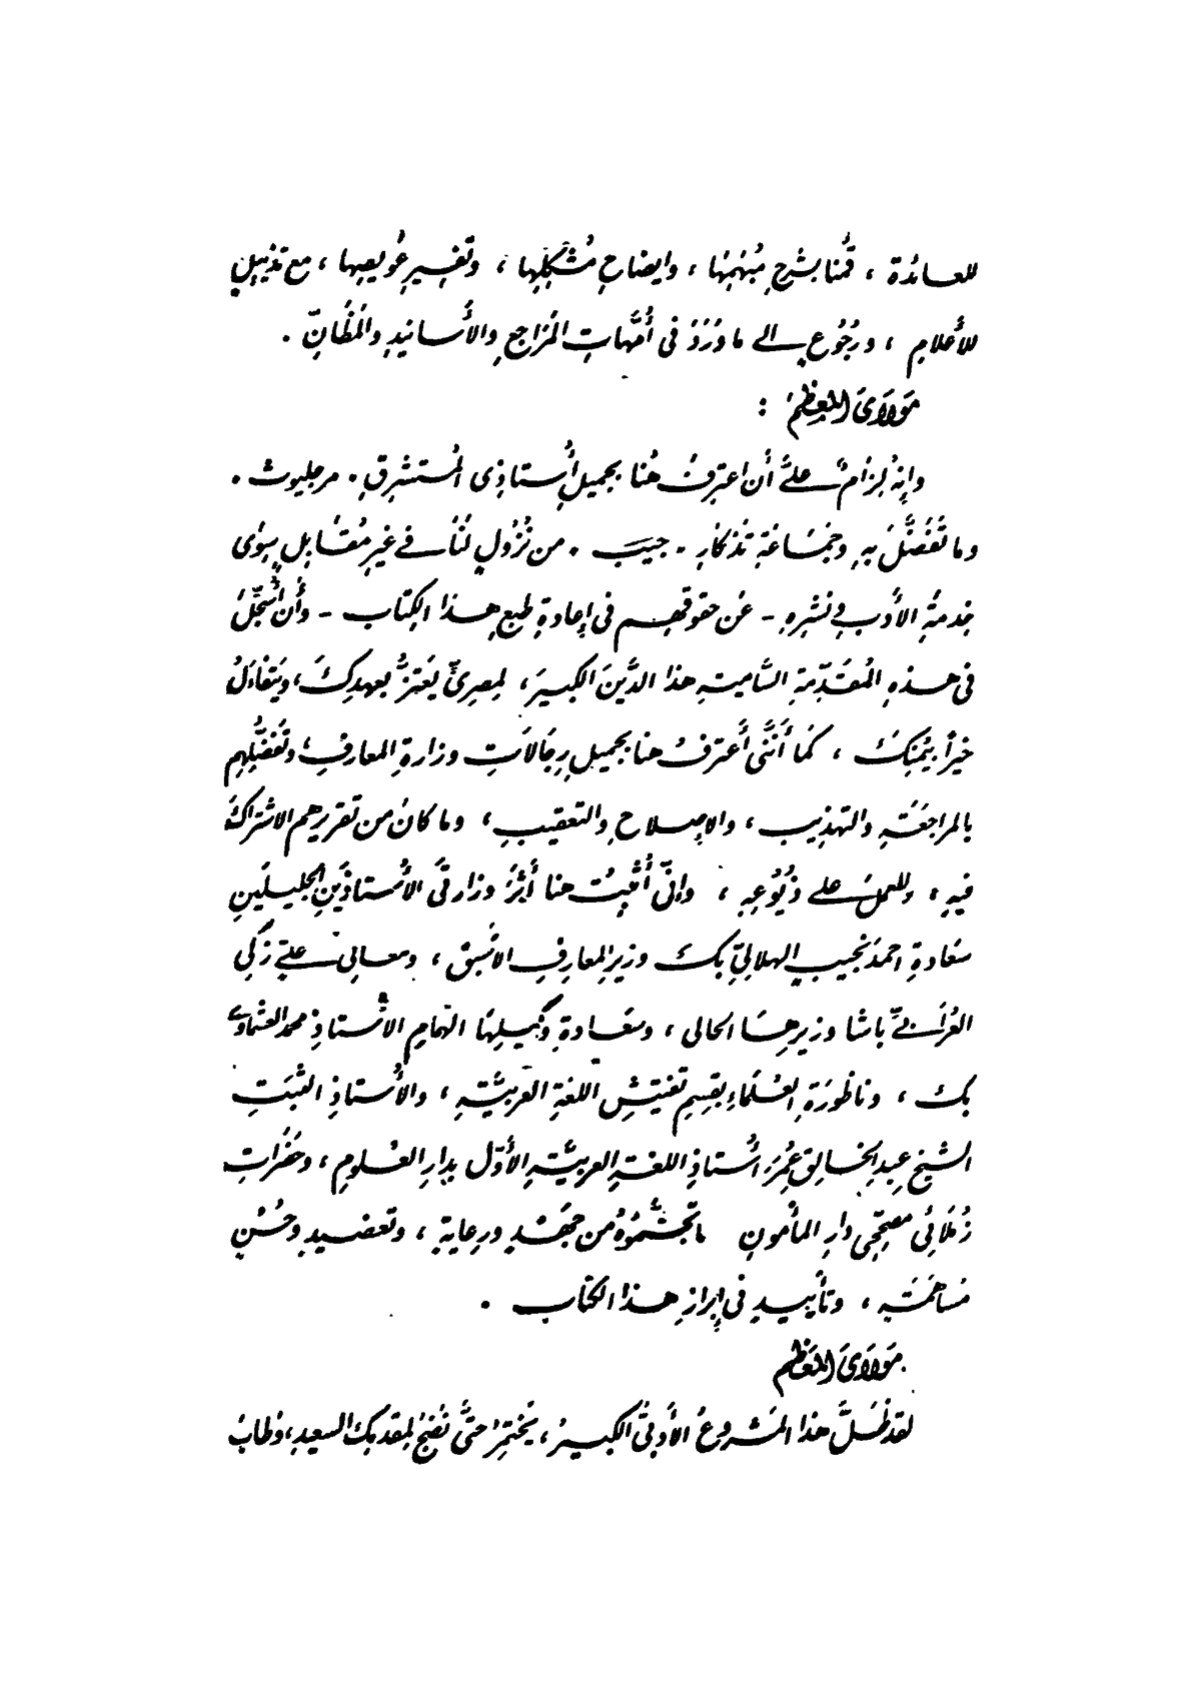 للعائدة ، قمنا بشرح مبهمها ، وإيضاح مُشكِلها ، وتفسير عُويصها ، مع تذييلٍ
للأعلام ، ورجوعٍ إلى ما وَرَدَ في أُمَّهاتِ المَراجع والأسانيدِ والمَظانِّ .
مَولايَ المعظم :
وإنه لِزامٌ عليَّ أن أعترف هُنا بجميل أُستاذي المُستشرقِ . مرجليوث .
وما تَفَضَّلَ به وجَمَاعَةِ تذكار . جيب . من نُزُولٍ لَنَا في غيرِ مُقَابِلٍ سِوى
خِدمَةِ الأدبِ ونشرِهِ - عَن حقوقهم في إعادةِ طبعِ هذا الكِتاب - وأن أُسَجِّلَ
في هذه المُقَدِّمةِ السَّاميةِ هذا الدَّينَ الكبيرَ ، لمصريٍّ يَعتزُّ بعهدِكَ ، ويَتَفاءَلُ
خيراً بيُمنِكَ ، كَمَا أَنَّنِي أَعترفُ هنا بجميلِ رِجَالاتِ وزارةِ المعارفِ وتَفَضُّلِهِم
بالمراجَعَةِ والتهذيبِ ، والإصلاحِ والتعقيبِ ، وما كان من تقريرهم الاشتراكَ
فيهِ ، وللعملِ على ذُيُوعِهِ ، وإنّي أُثبِتُ هنا أَثَرَ وزارتَي الأُستاذَينِ الجليلَينِ
سَعَادةِ أحمدَ نجيبٍ الهلاليّ بك وزيرِ المعارفِ الأسبق ، ومعالي عليّ زكي
العُرَابيّ باشا وزيرِها الحالي ، وسَعَادةِ وَكيلِهَا الهمامِ الأستاذِ محمد العشماوي
بك ، وناظورَةِ العُلَماءِ بقسمِ تفتيشِ اللغةِ العربيَّةِ ، والأُستاذِ الثَّبَتِ
الشيخِ عبدِ الخالق عُمَرَ أُستاذِ اللغةِ العربيَّةِ الأوَّلِ بدارِ العلومِ ، وحَضَراتِ
زُملائي مصحِّحي دارِ المأمونِ ما تجشَّمُوهُ من جَهدٍ ورِعايةٍ ، وتعضيدٍ وحُسنِ
مُساهَمَةٍ ، وتأييدٍ في إبرازِ هذا الكتاب .
مَولايَ المعَظم
لقد ظَلَّ هذا المَشروعُ الأدبيُّ الكبيرُ ، يَختمِرُ حتَّى نَضَجَ لمقدمِكَ السعيدِ ، وطابَ